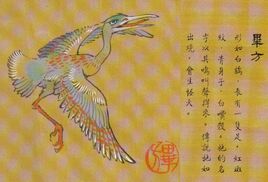 畢方
形如白鶴，長有一隻足，紅斑
紋，青身子，白嘴殼，他的名
字以其鳴叫聲得來，傳說牠如
出現，會生怪火。